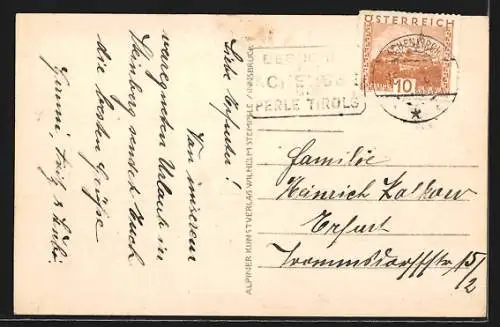 Liebe Erfurter!
Von unserem
verregneten Urlaub in
sendet Euch
die besten Grüße
Fritz &
ALPINER KUNSTVERLAG WILHELM STEMPFLE / INNSBRUCK
BESUCHT
ACHENSEE
DIE
PERLE TIROLS
ÖSTERREICH
10
Familie
Heinrich Kalkow
Erfurt
Trommsdorffstr. 15/2